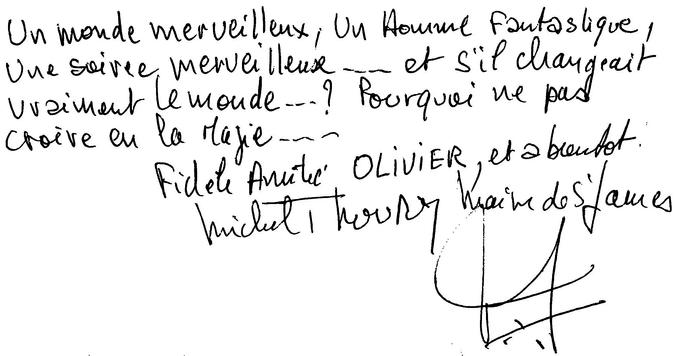 Un monde merveilleux, Un Homme Fantastique,
Une soirée merveilleuse --- et s'il changeait
vraiment le monde ---? Pourquoi ne pas
croire en la Magie ----
Fidèle Amitié OLIVIER, et a bientot.
Michel Thoury Maire de St James